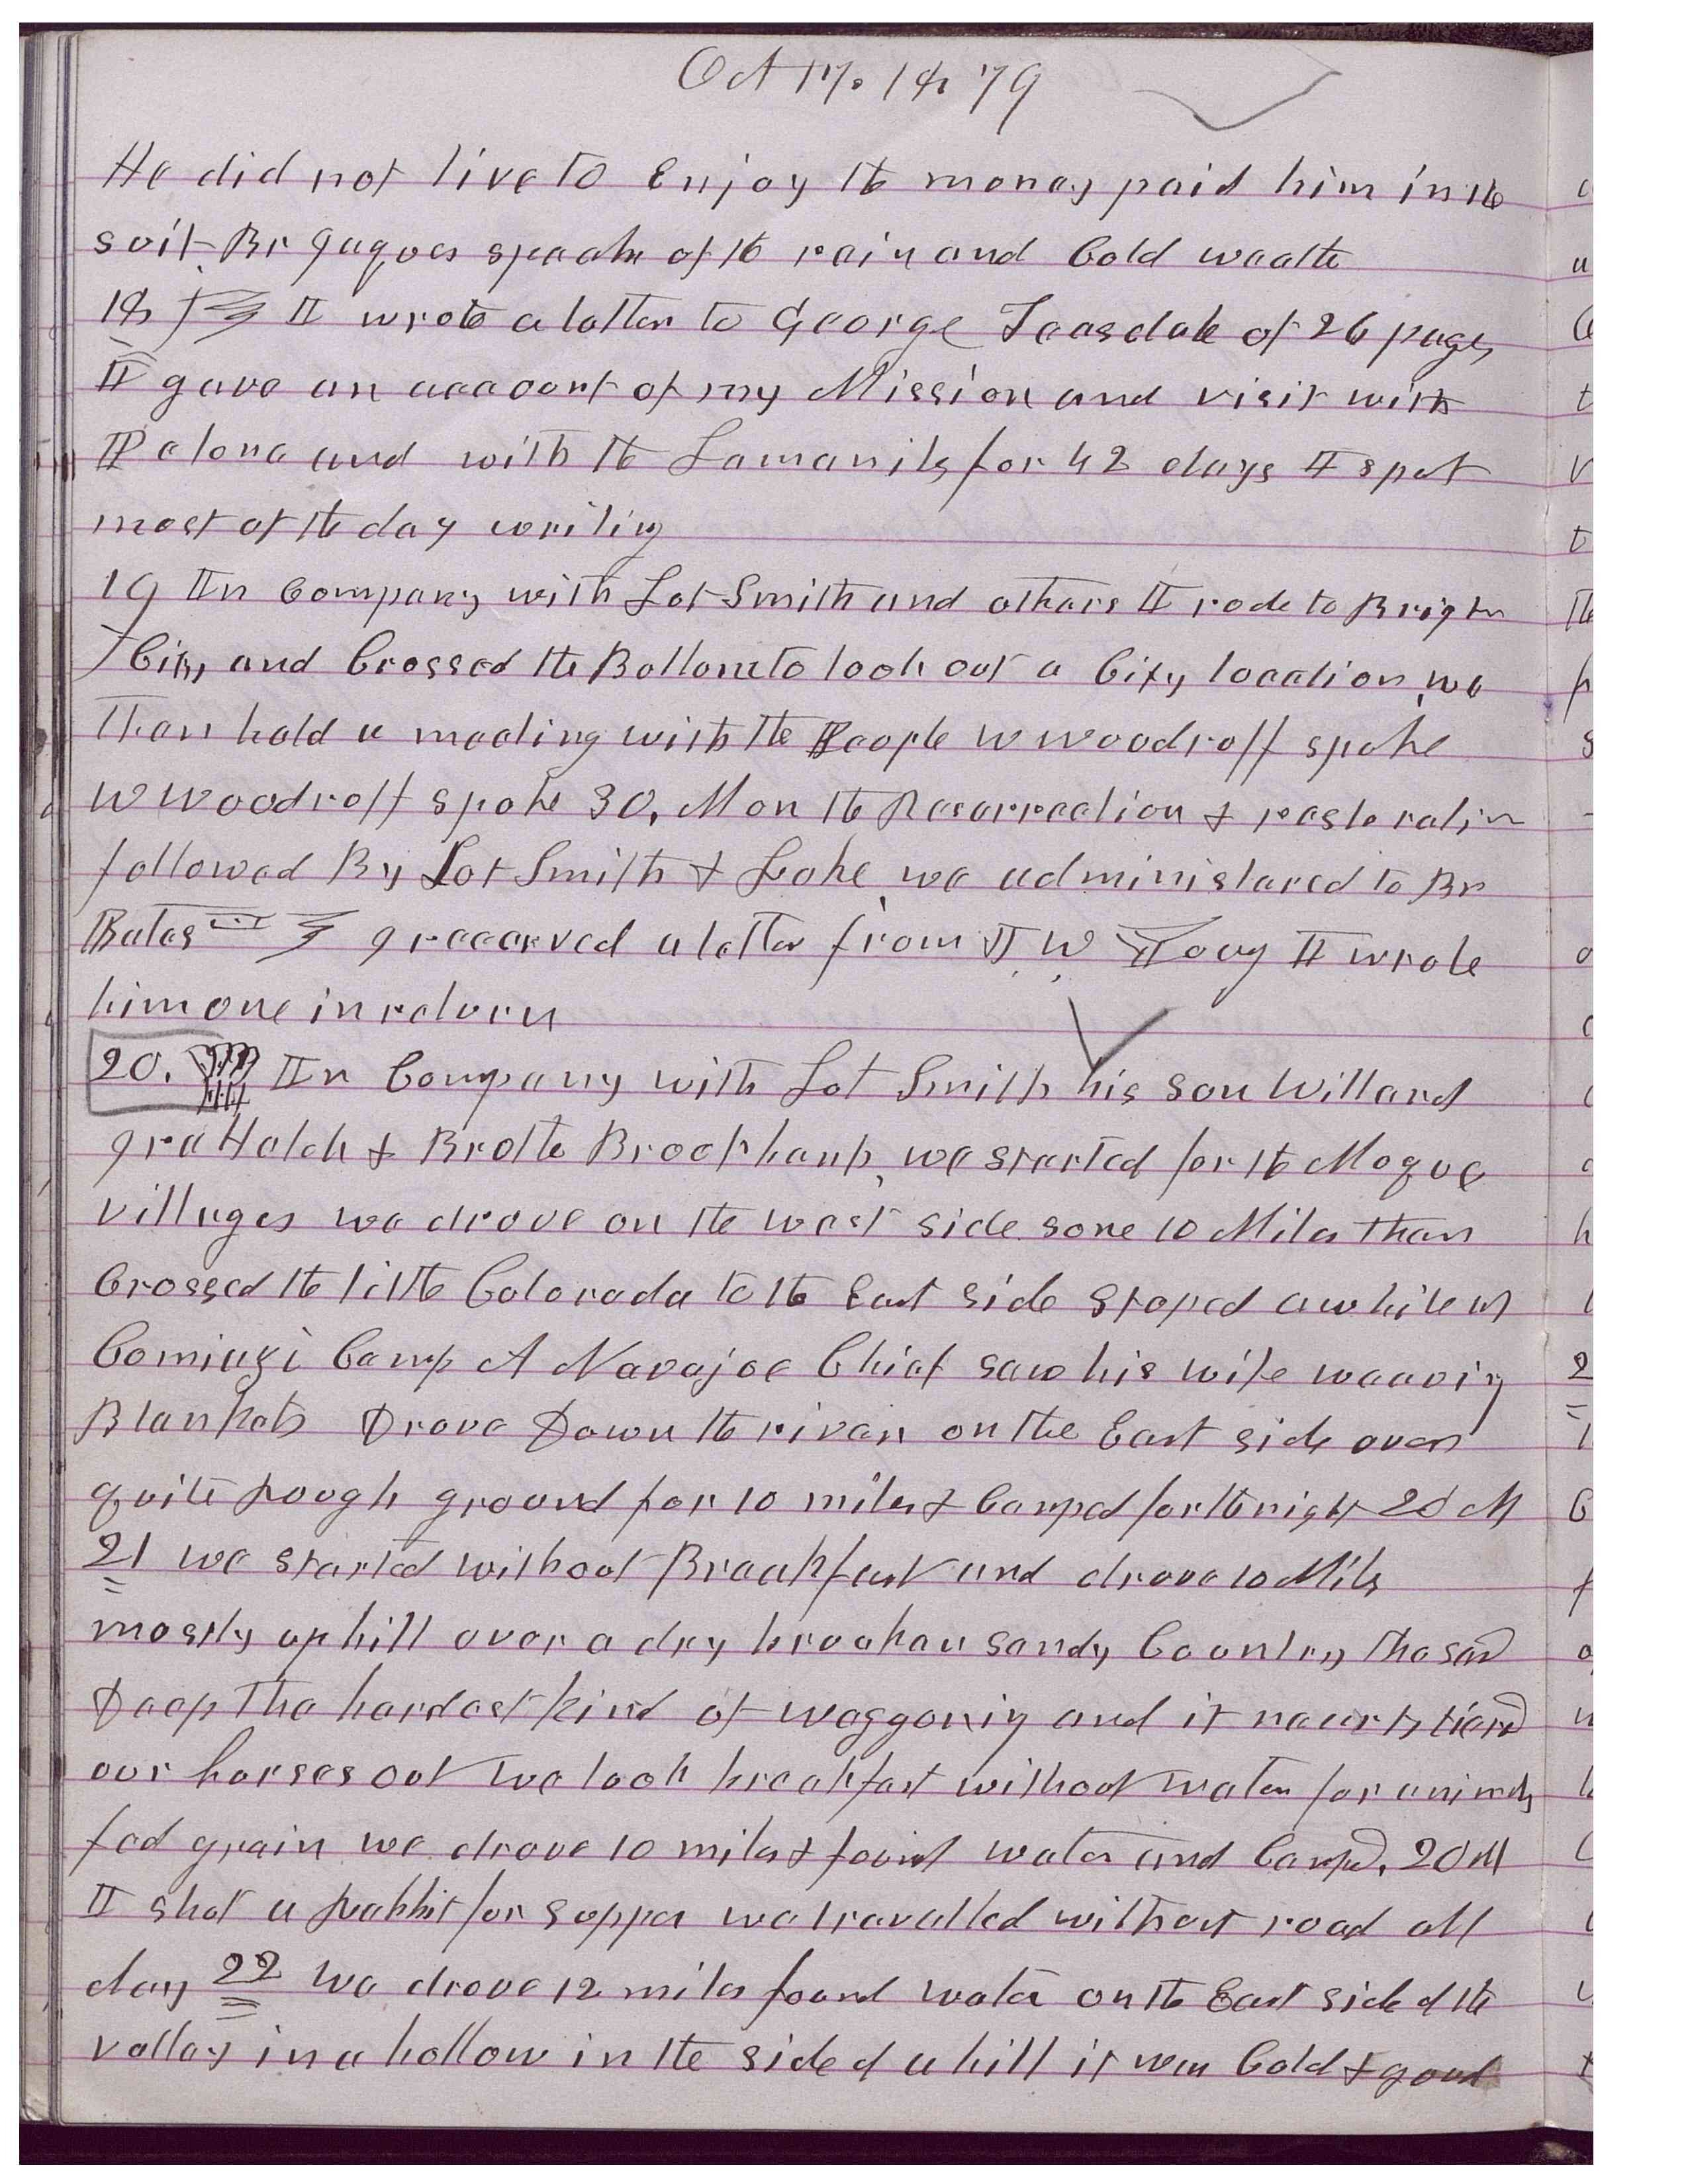 Oct 17. 1879
He did not live to Enjoy the money paid him in the
suit Br Jaques speaks of the rain and Cold weather
18 I wrote a letter to George Teasdale of 26 pages
I gave an account of my Mission and visit with
Petone and with the Lamanits for 42 days I spet
most of the day writing
19 In Company with Lot Smith and others I rode to Brigham
City and Crossed the Bottom to look out a City location, we
then held a meeting with the People W Woodruff spoke
W Woodruff spoke 30, M on the Resurrection & restoration
followed By Lot Smith & Lake, we administered to Br
Bates I receeved a letter from I W Young I wrote
him one in return
20. In Company with Lot Smith his son Willard
Ira Hatch & Brother Brookbank, we started for the Moque
villages we drove on the west side some 10 Miles then
Crossed the little Colorado to the East side stoped awhile at
Comiuzi Camp A Navajoe Chief saw his wife weaving
Blankets Drove Down the river on the East side over
quite Rough ground for 10 miles & Camped for the night 20 M
21 we started without Breakfast and drove 10 Mils
mostly up hill over a dry broaken sandy Country the sand
Deep the hardest kind of waggoning and it nearly tierd
our horses out we took breakfast without water for animals
fed grain we drove 10 miles & found water and Campd. 20 M
I shot a Rabbit for supper we travelled without road all
day 22 We drove 12 miles found water on the East side of the
valley in a hollow in the side of a hill it was Cold & good